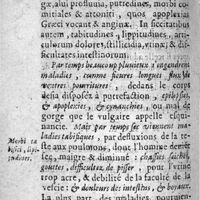 gæ, alui profluuia, putredines, morbi co-
mitiales & attoniti, quos apoplexias
Græci vocant & anginæ. In siccitatibus
autem, tabitudines, lippitudines, arti-
culorum dolores, stillicidia, vrinæ, & dif-
ficultates intestinorum.
Par temps beaucoup pluuieux s'engendrent
maladies, comme fieures longues, flux de
ventres pourritures, dedans le corps
desia disposé à putrefaction & epilepsies,
& apoplexies, & cynanchies, ou mal de
gorge que le vulgaire appelle esqui-
nancie. Mais par temps sec viennent ma-
ladies tabifiques, par defluxions de la te-
ste aux poulmons, dont l'homme deuient
sec, maigre & diminué: chassies seiches,
gouttes, difficultez de pisser, pour l'vrine
trop acre, & debilité de la faculté de la
vescie: & douleurs des intestins, & boyaux.
La plus part des maladies pourront
Morbi ta